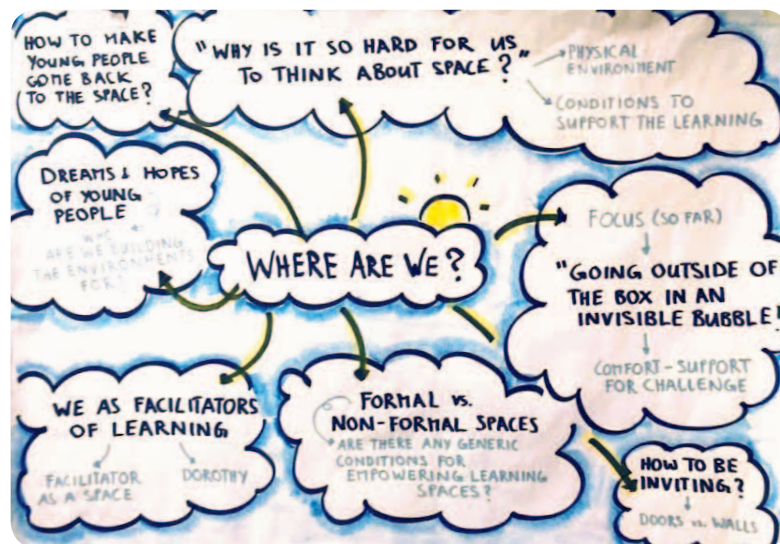 HOW TO MAKE
YOUNG PEOPLE
COME BACK
TO THE SPACE?
"WHY IS IT SO HARD FOR US
TO THINK ABOUT SPACE?"
PHYSICAL
ENVIRONMENT
CONDITIONS TO
SUPPORT THE LEARNING
DREAMS & HOPES
OF YOUNG
PEOPLE
WHO
ARE WE BUILDING
THE ENVIRONMENTS
FOR?
WHERE ARE WE?
FOCUS (SO FAR)
"GOING OUTSIDE OF
THE BOX IN AN
INVISIBLE BUBBLE!
COMFORT - SUPPORT
FOR CHALLENGE
WE AS FACILITATORS
OF LEARNING
FACILITATOR
AS A SPACE
DOROTHY
FORMAL VS.
NON-FORMAL SPACES
ARE THERE ANY GENERIC
CONDITIONS FOR
EMPOWERING LEARNING
SPACES?
HOW TO BE
INVITING?
DOORS vs. WALLS